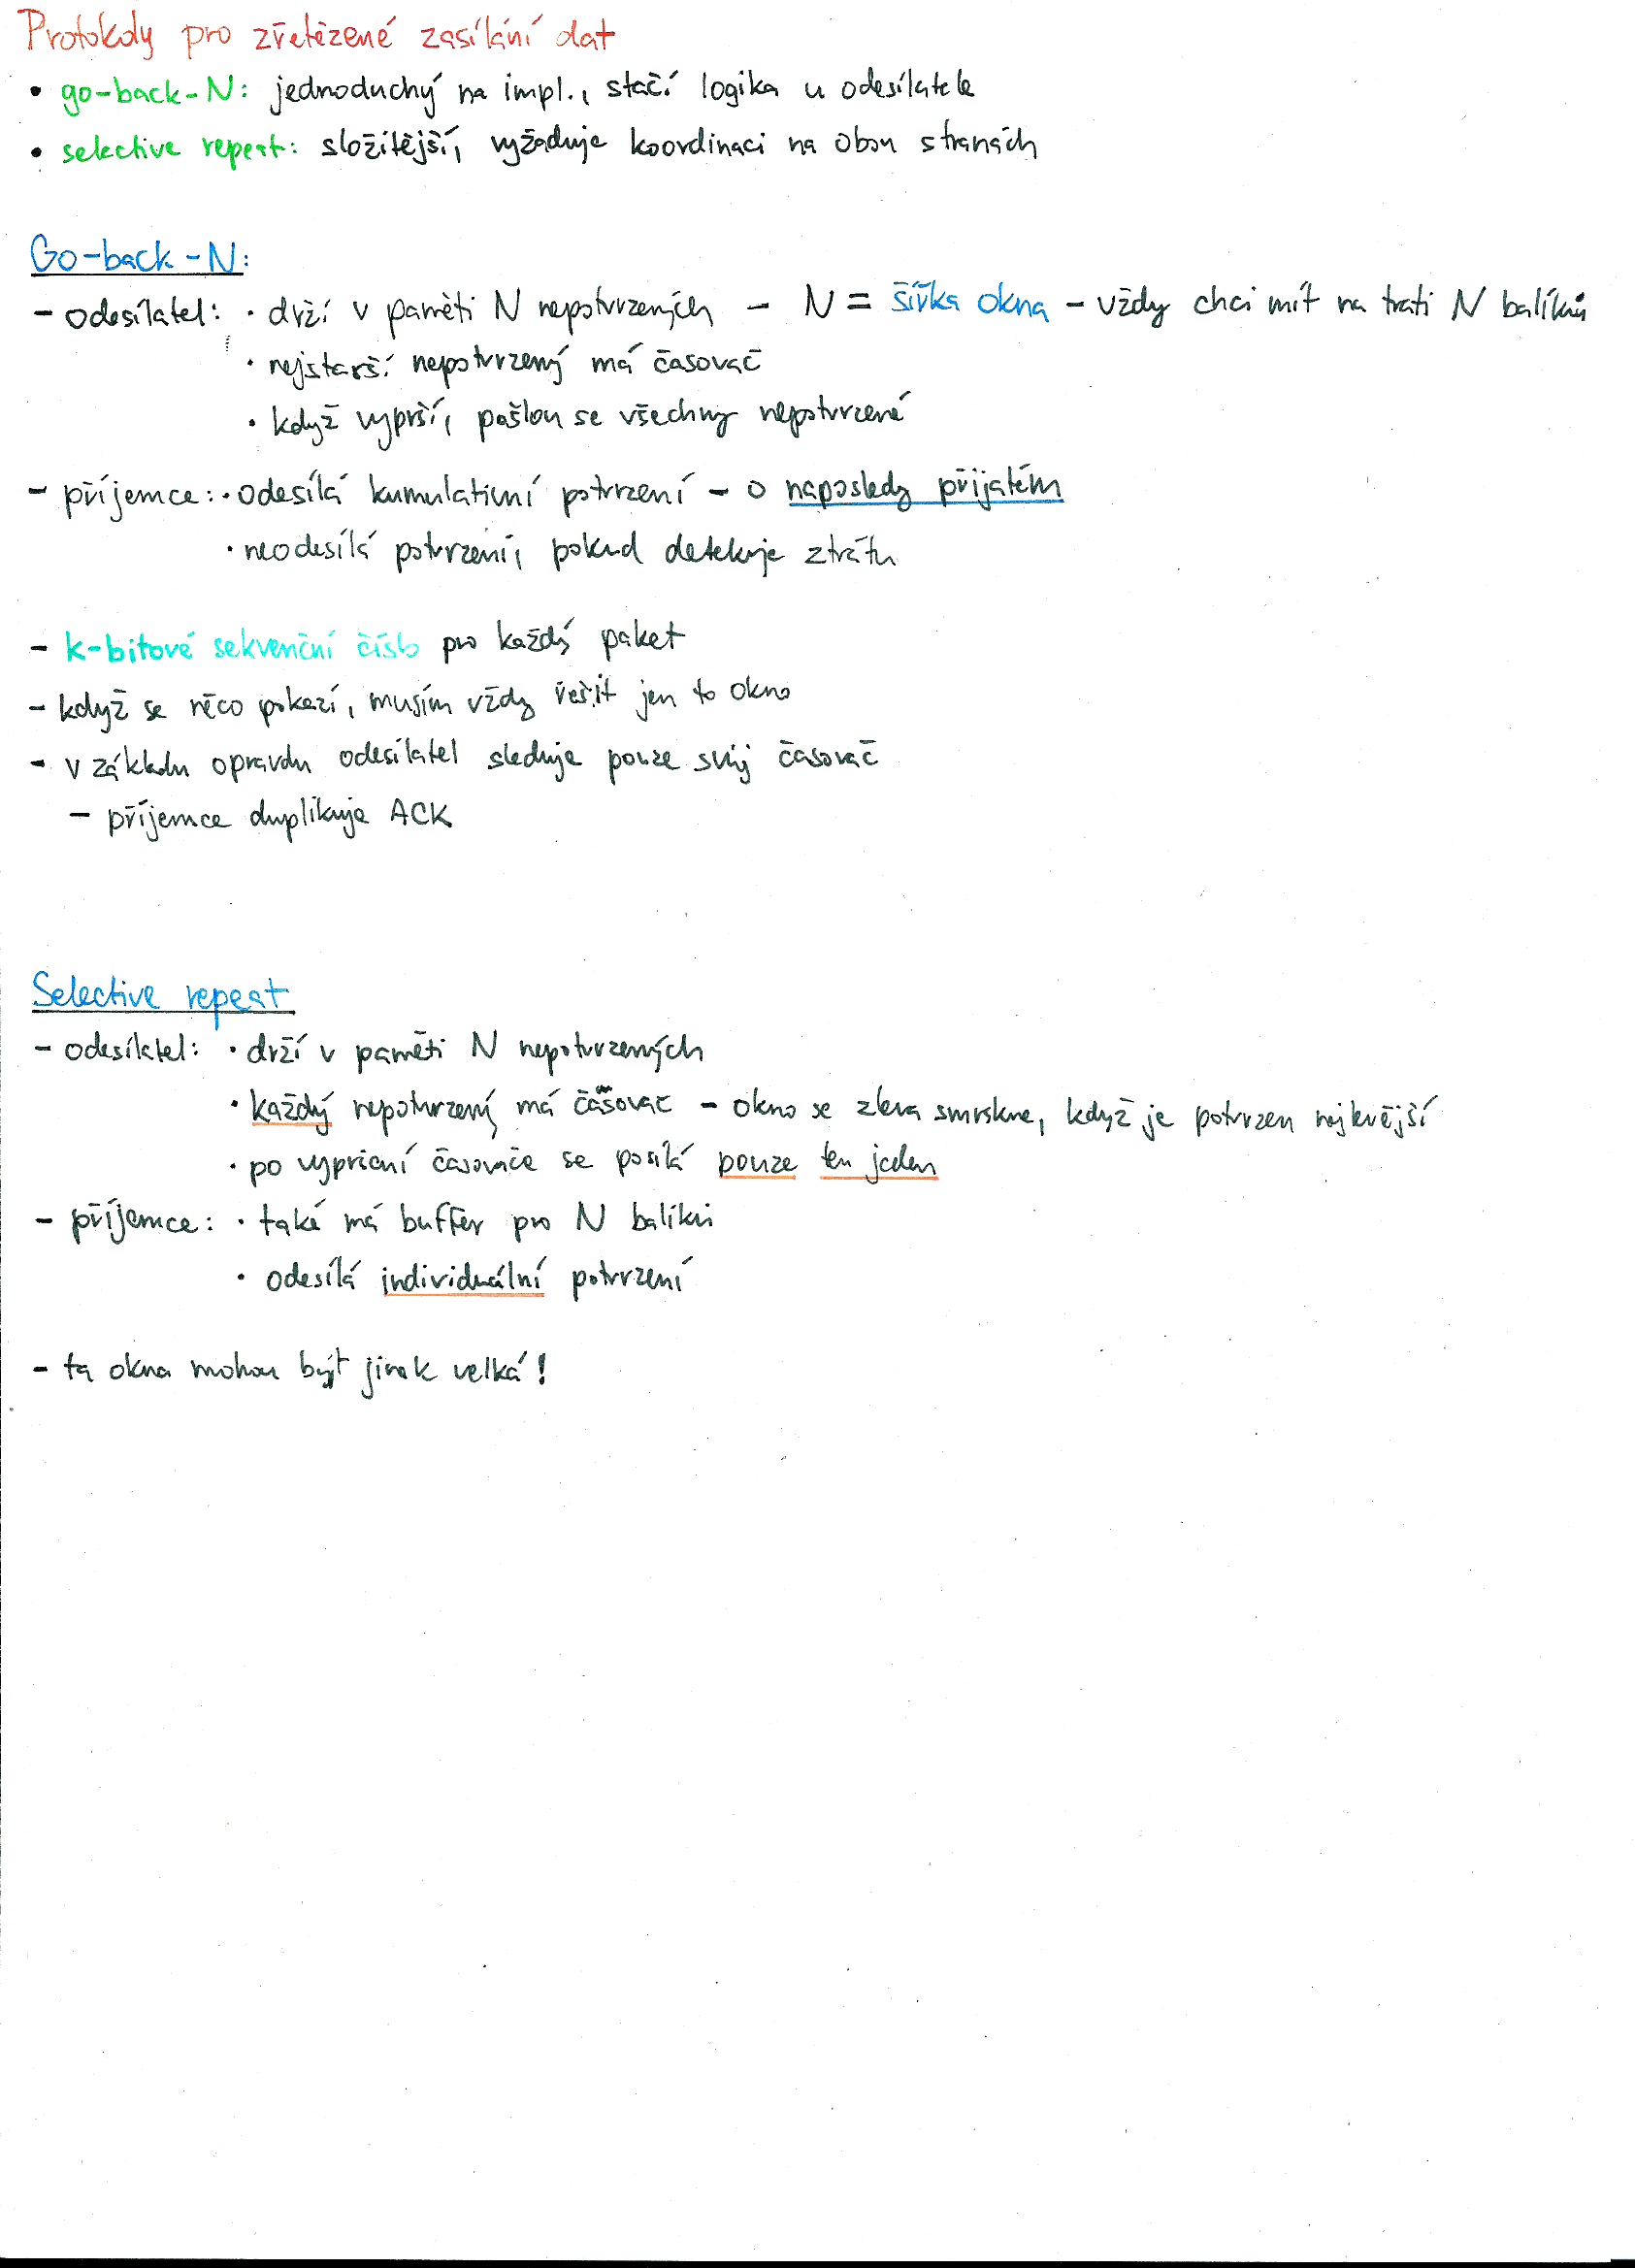 Protokoly pro zřetězené zasílání dat
• go-back-N: jednoduchý na impl., stačí logika u odesílatele
• selective repeat: složitější, vyžaduje koordinaci na obou stranách
Go-back-N:
- odesílatel: · drží v paměti N nepotvrzených - N = šířka okna - vždy chci mít na trati N balíků
· nejstarší nepotvrzený má časovač
· když vyprší, pošlou se všechny nepotvrzené
- příjemce: · odesílá kumulativní potvrzení - o naposledy přijatém
· neodesílá potvrzení, pokud detekuje ztrátu
- k-bitové sekvenční číslo pro každý paket
- když se něco pokazí, musím vždy řešit jen to okno
- v základu opravdu odesílatel sleduje pouze svůj časovač
- příjemce duplikuje ACK
Selective repeat
- odesílatel: · drží v paměti N nepotvrzených
· každý nepotvrzený má časovač - okno se zleva smrskne, když je potvrzen nejlevější
· po vypršení časovače se posílá pouze ten jeden
- příjemce: · také má buffer pro N balíků
· odesílá individuální potvrzení
- ta okna mohou být jinak velká!